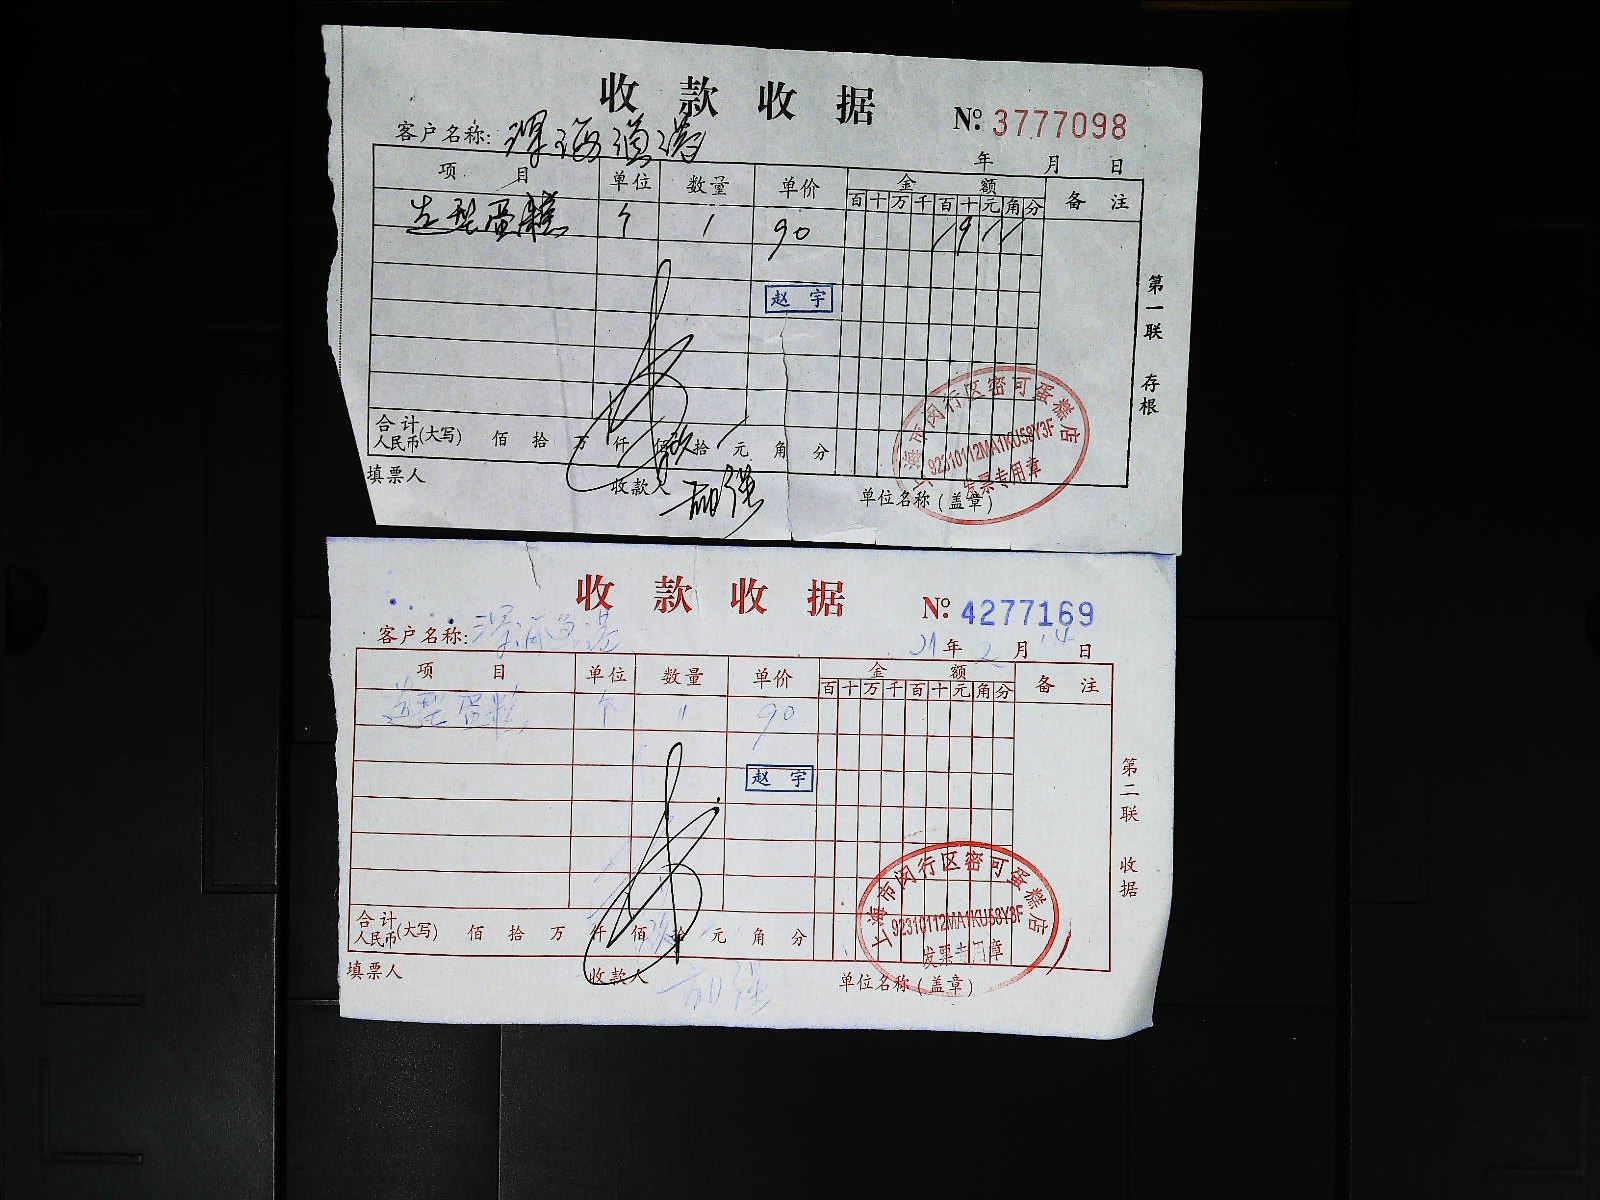 收款收据
№: 3777098
客户名称: 深海渔港
年 月 日
项目 单位 数量 单价 金额 备注
百 十 万 千 百 十 元 角 分
造型蛋糕 个 1 90 / 9 / /
赵宇
第一联 存根
合计人民币(大写) 佰 拾 万 仟 佰 玖拾 元 角 分
填票人 收款人 单位名称(盖章)
上海市闵行区密可蛋糕店
92310112MA1KU58Y3F
发票专用章
收款收据
№: 4277169
客户名称: 深海渔港
21年 2月 14日
项目 单位 数量 单价 金额 备注
百 十 万 千 百 十 元 角 分
造型蛋糕 个 11 90
赵宇
第二联 收据
合计人民币(大写) 佰 拾 万 仟 佰 玖拾 元 角 分
填票人 收款人 单位名称(盖章)
上海市闵行区密可蛋糕店
92310112MA1KU58Y3F
发票专用章